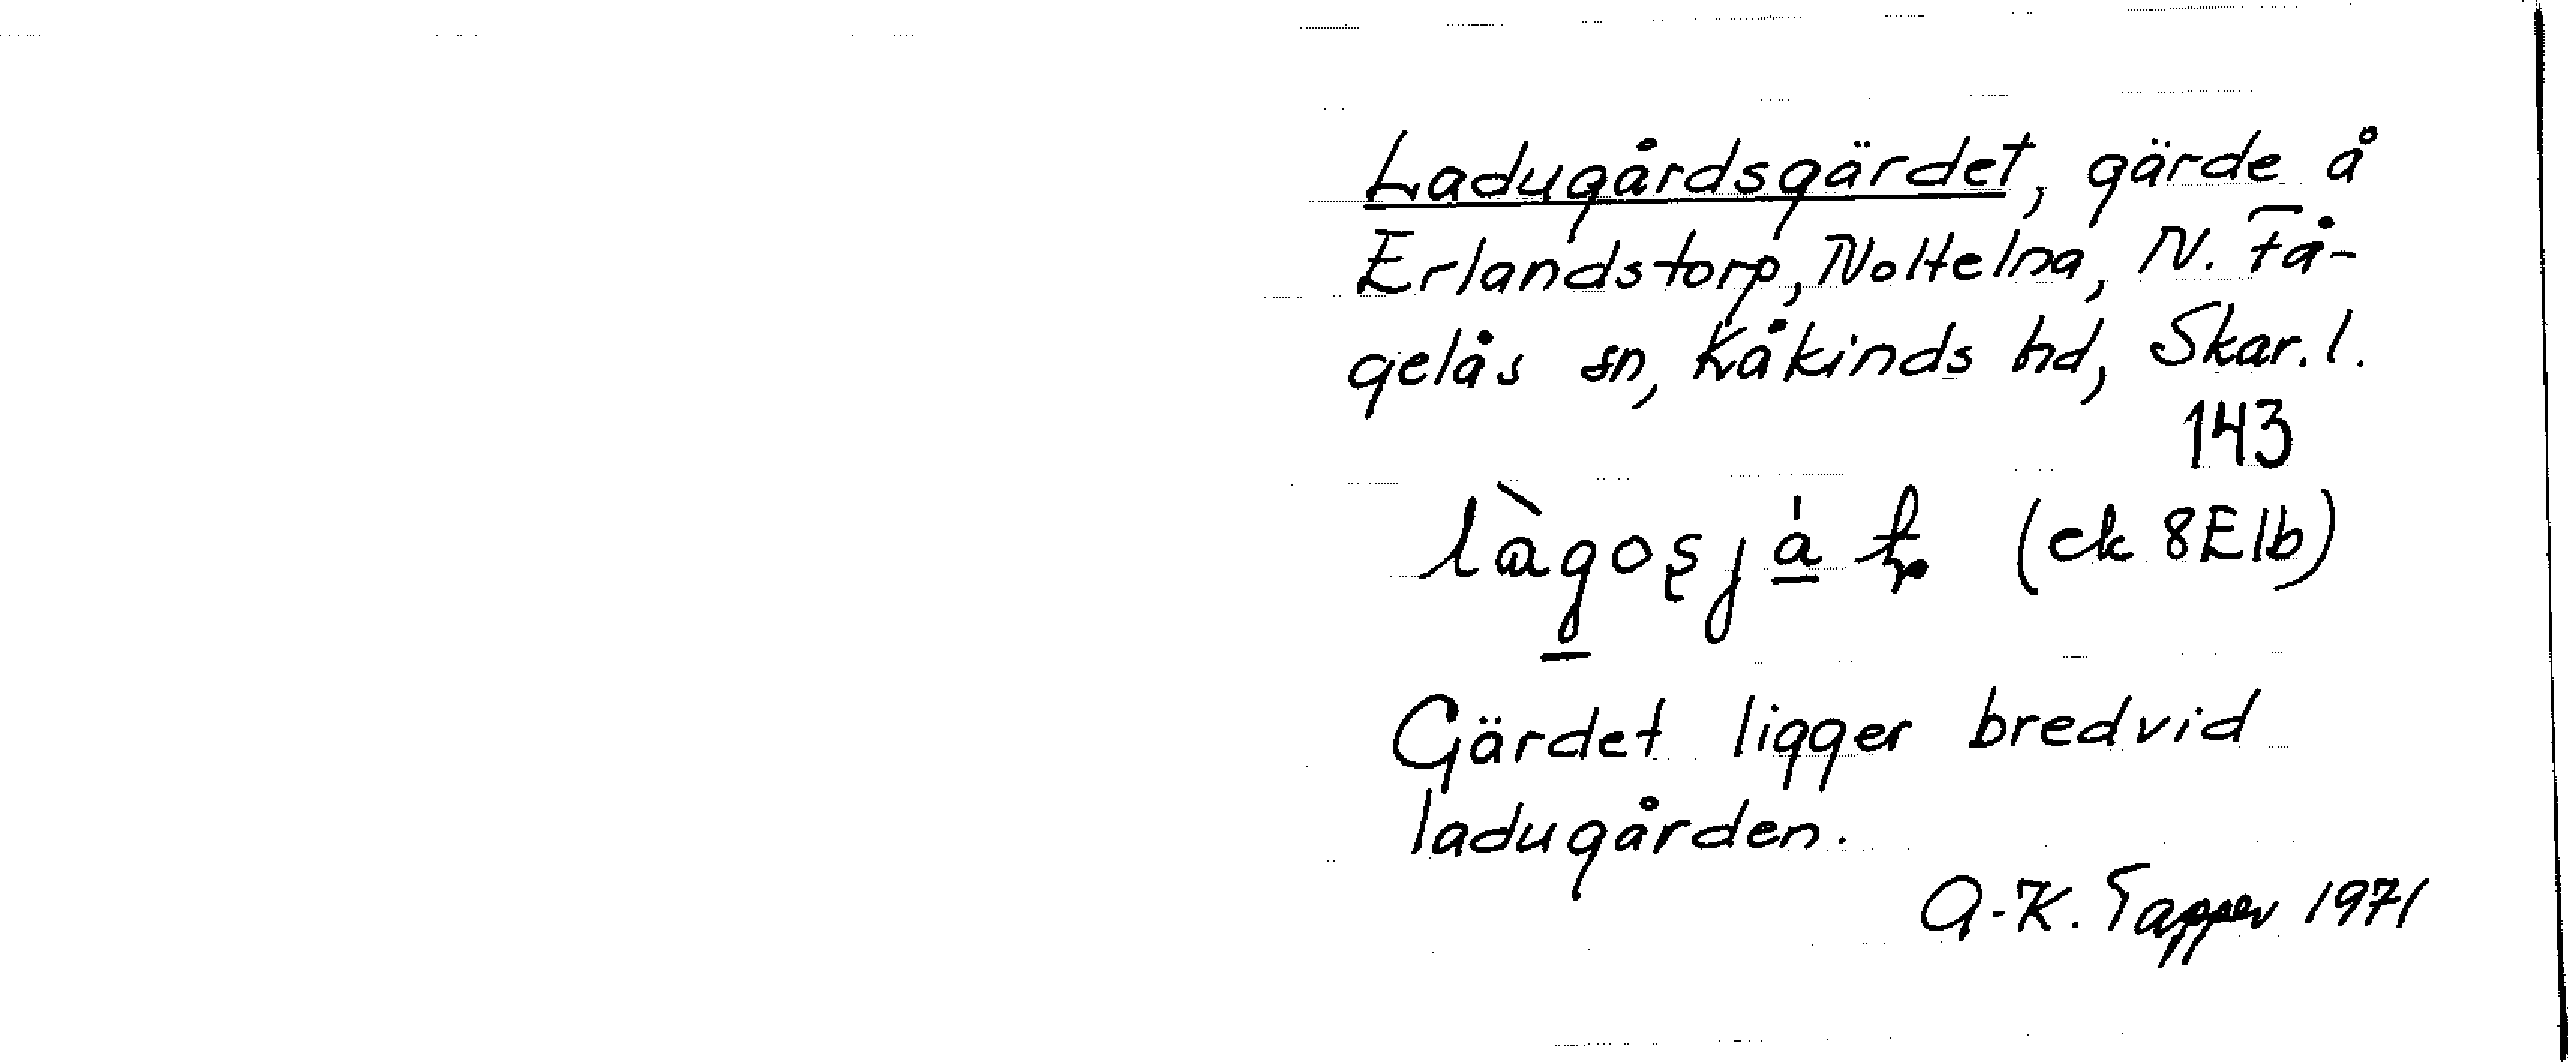 Ladugårdsgärdet, gärde å
Erlandstorp, Noltelna, N. Få-
gelås sn, Kåkinds hd, Skar. l.
143
(ek 8E1b)
Gärdet ligger bredvid
ladugården.
A-K. Tapper 1971